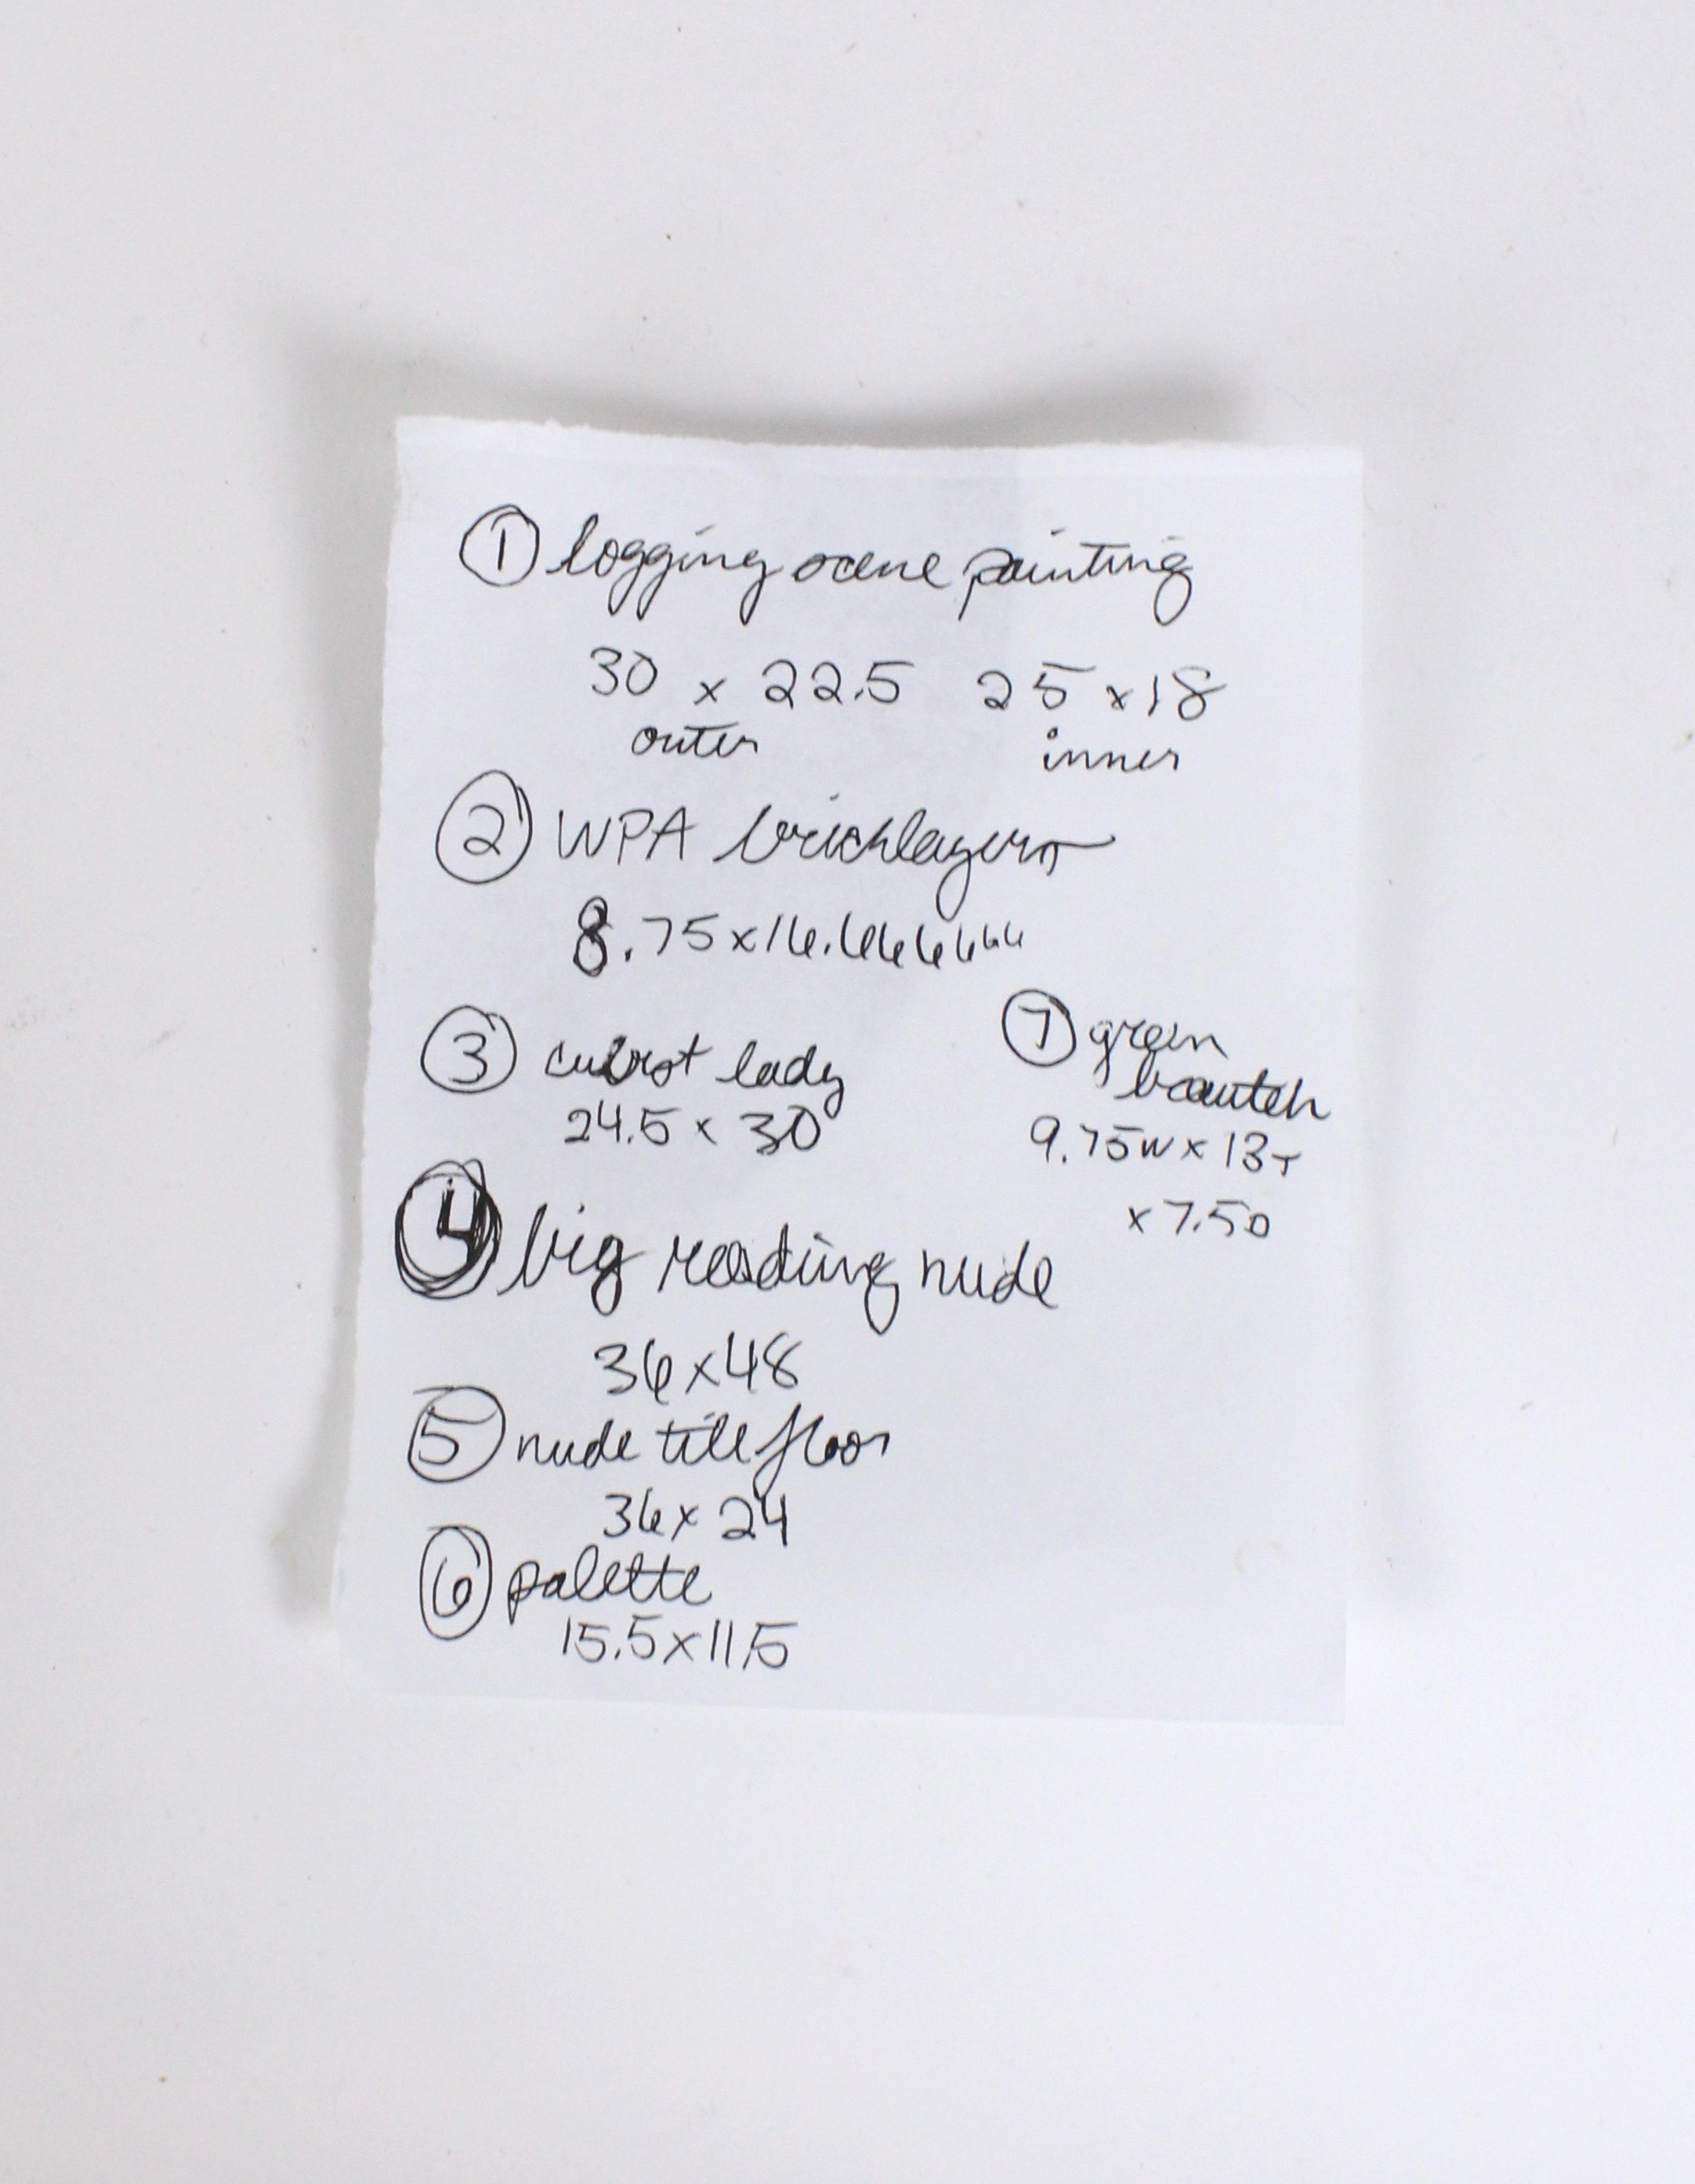 ① logging scene painting
30 x 22.5 25 x 18
outer inner
② WPA bricklayers
8.75x16.666666
③ cubist lady
24.5 x 30
④ big reading nude
36x48
⑤ nude tile floor
36x 24
⑥ palette
15.5x11.5
⑦ green
9.75W x 13T
x 7.5D